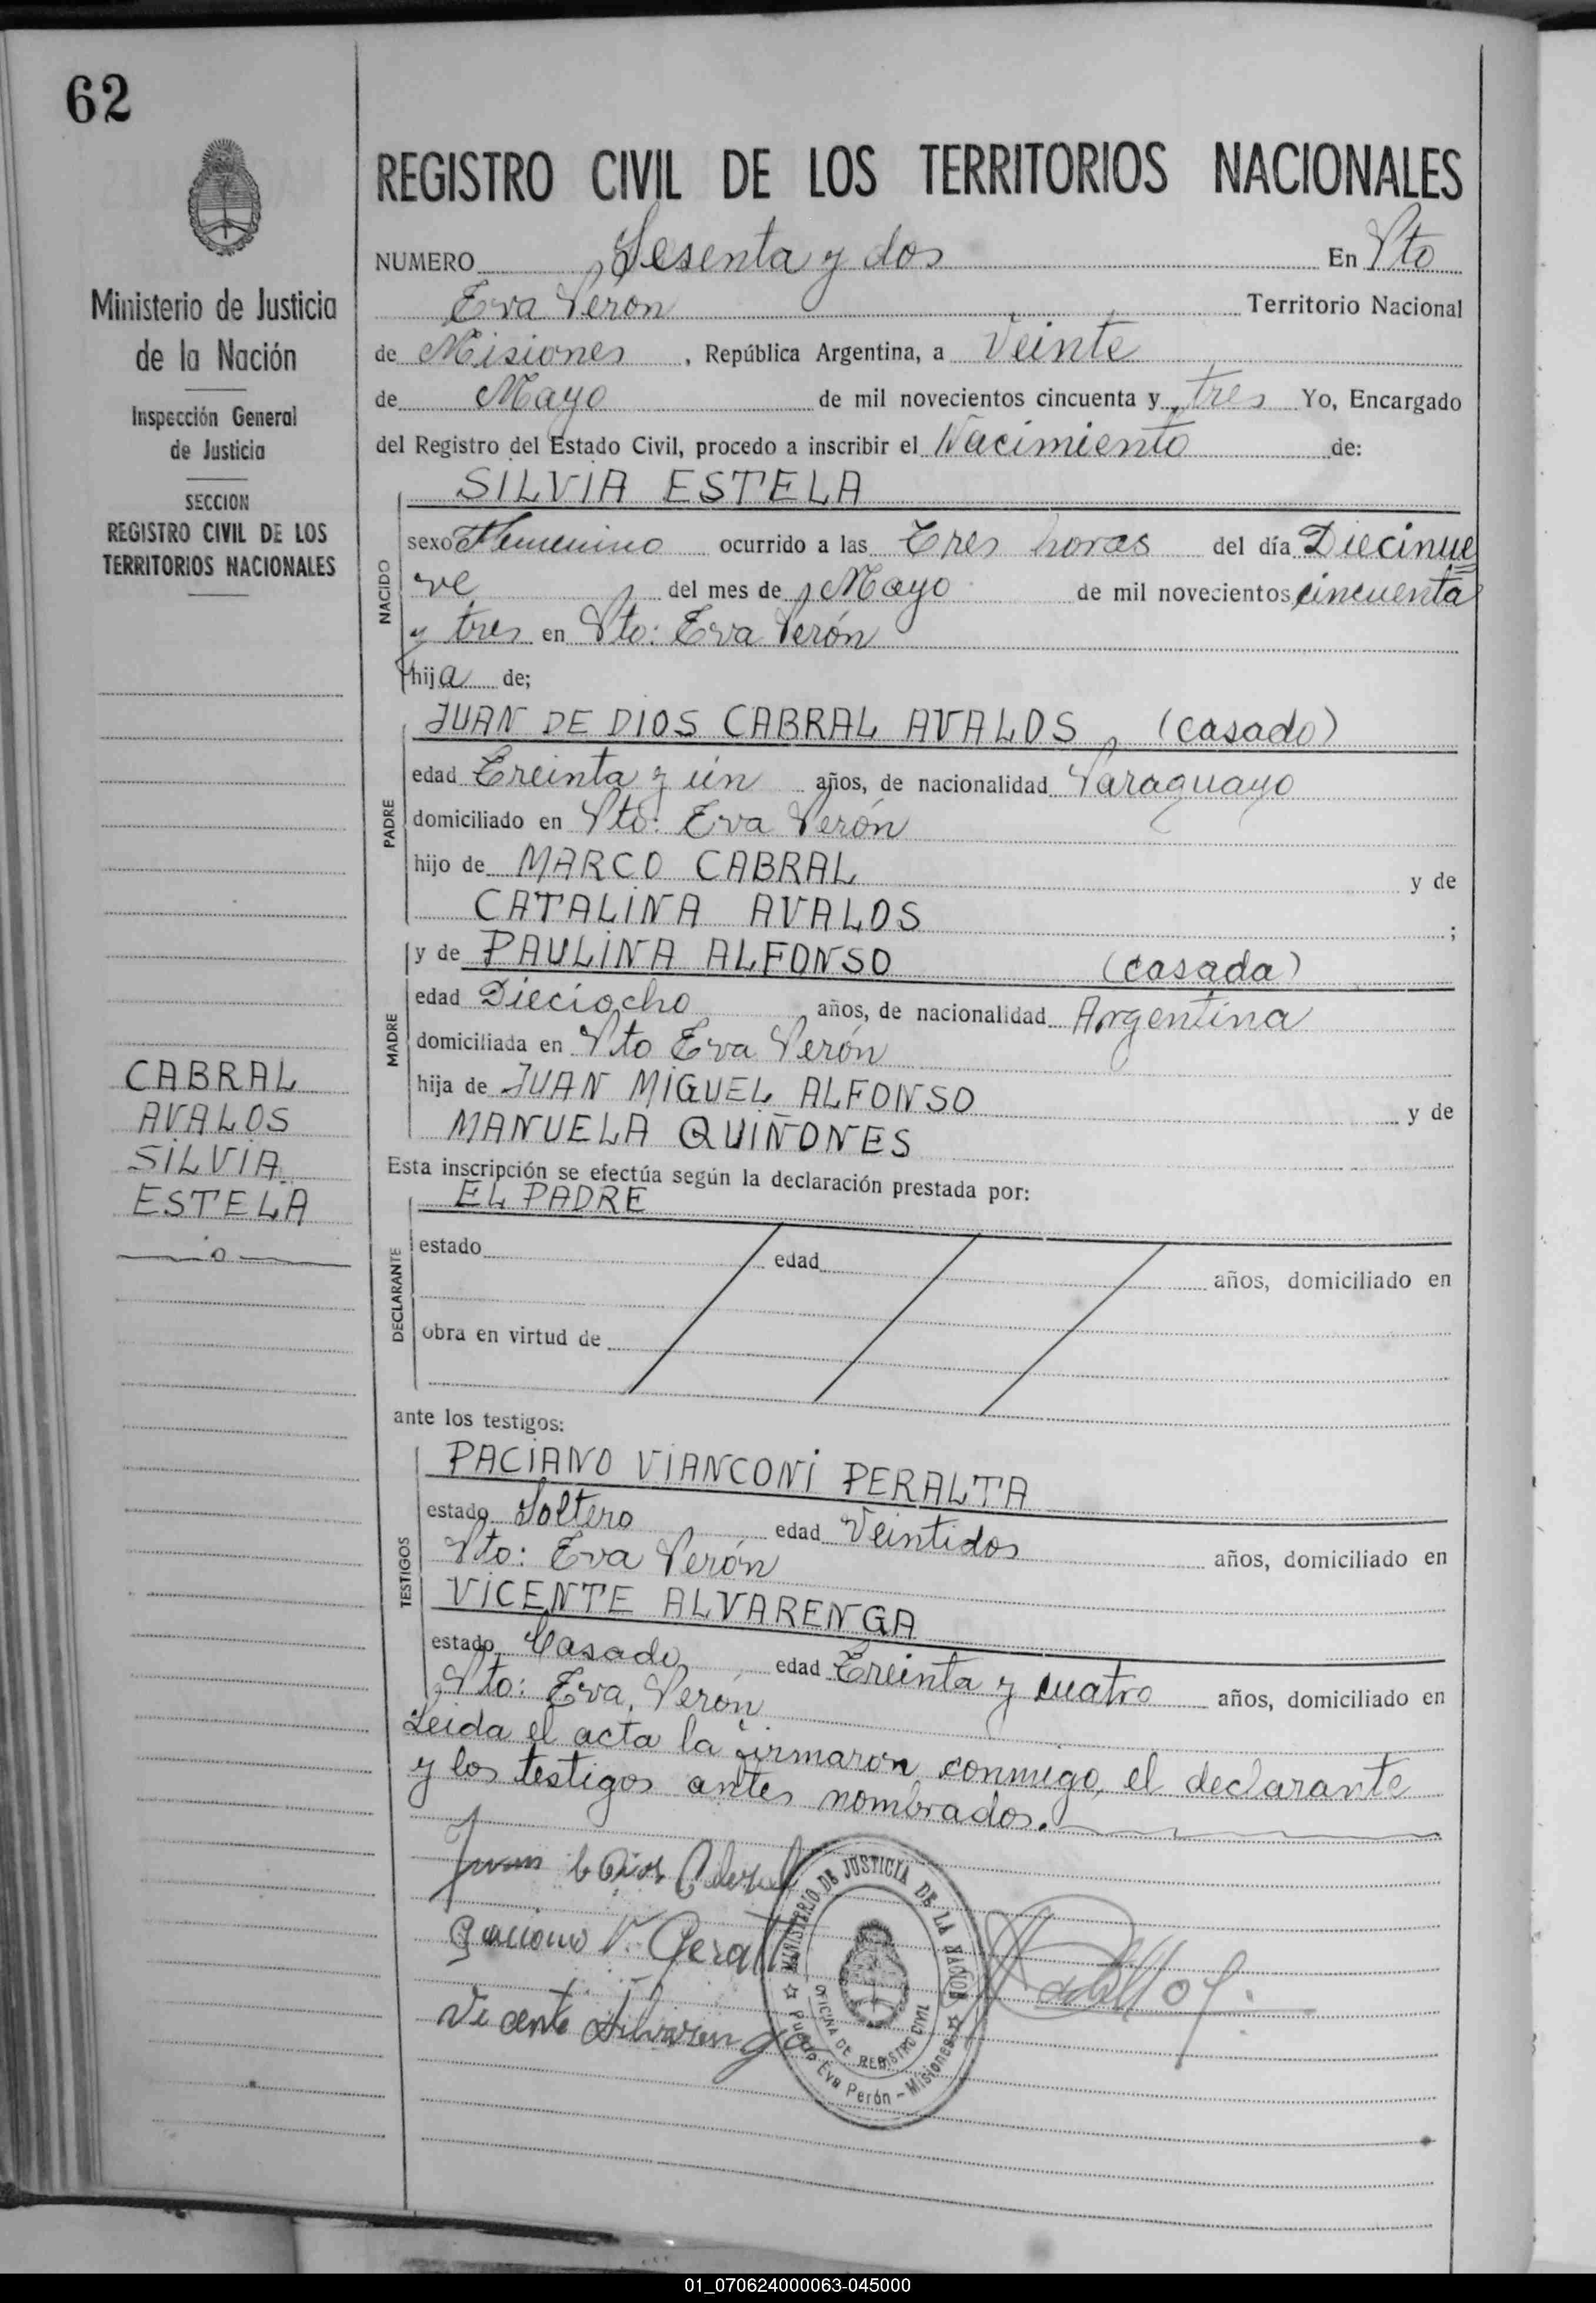 62
Ministerio de Justicia
de la Nación
Inspección General
de Justicia
SECCION
REGISTRO CIVIL DE LOS
TERRITORIOS NACIONALES
CABRAL
AVALOS
SILVIA
ESTELA
REGISTRO CIVIL DE LOS TERRITORIOS NACIONALES
NUMERO Sesenta y dos En Pto
Eva Perón Territorio Nacional
de Misiones, República Argentina, a Veinte
de Mayo de mil novecientos cincuenta y tres Yo, Encargado
del Registro del Estado Civil, procedo a inscribir el Nacimiento de:
SILVIA ESTELA
NACIDO
sexo Femenino ocurrido a las Tres horas del día Diecinue
ve del mes de Mayo de mil novecientos cincuenta
y tres en Pto: Eva Perón
hija de;
JUAN DE DIOS CABRAL AVALOS (casado)
PADRE
edad Treinta y un años, de nacionalidad Paraguayo
domiciliado en Pto: Eva Perón
hijo de MARCO CABRAL y de
CATALINA AVALOS ;
y de PAULINA ALFONSO (casada)
MADRE
edad Dieciocho años, de nacionalidad Argentina
domiciliada en Pto Eva Perón
hija de JUAN MIGUEL ALFONSO y de
MANUELA QUIÑONES
Esta inscripción se efectúa según la declaración prestada por:
EL PADRE
DECLARANTE
estado edad años, domiciliado en
obra en virtud de
ante los testigos:
PACIANO VIANCONI PERALTA
TESTIGOS
estado Soltero edad Veintidos años, domiciliado en
Pto: Eva Perón
VICENTE ALVARENGA
estado Casado edad Treinta y cuatro años, domiciliado en
Pto: Eva Perón
Leida el acta la firmaron conmigo, el declarante
y los testigos antes nombrados.
Juan de Dios Cabral
Paciano V. Peralt
Vicente Alvarenga
MINISTERIO DE JUSTICIA DE LA NACION
OFICINA DE REGISTRO CIVIL
Puerto Eva Perón - Misiones
01_070624000063-045000